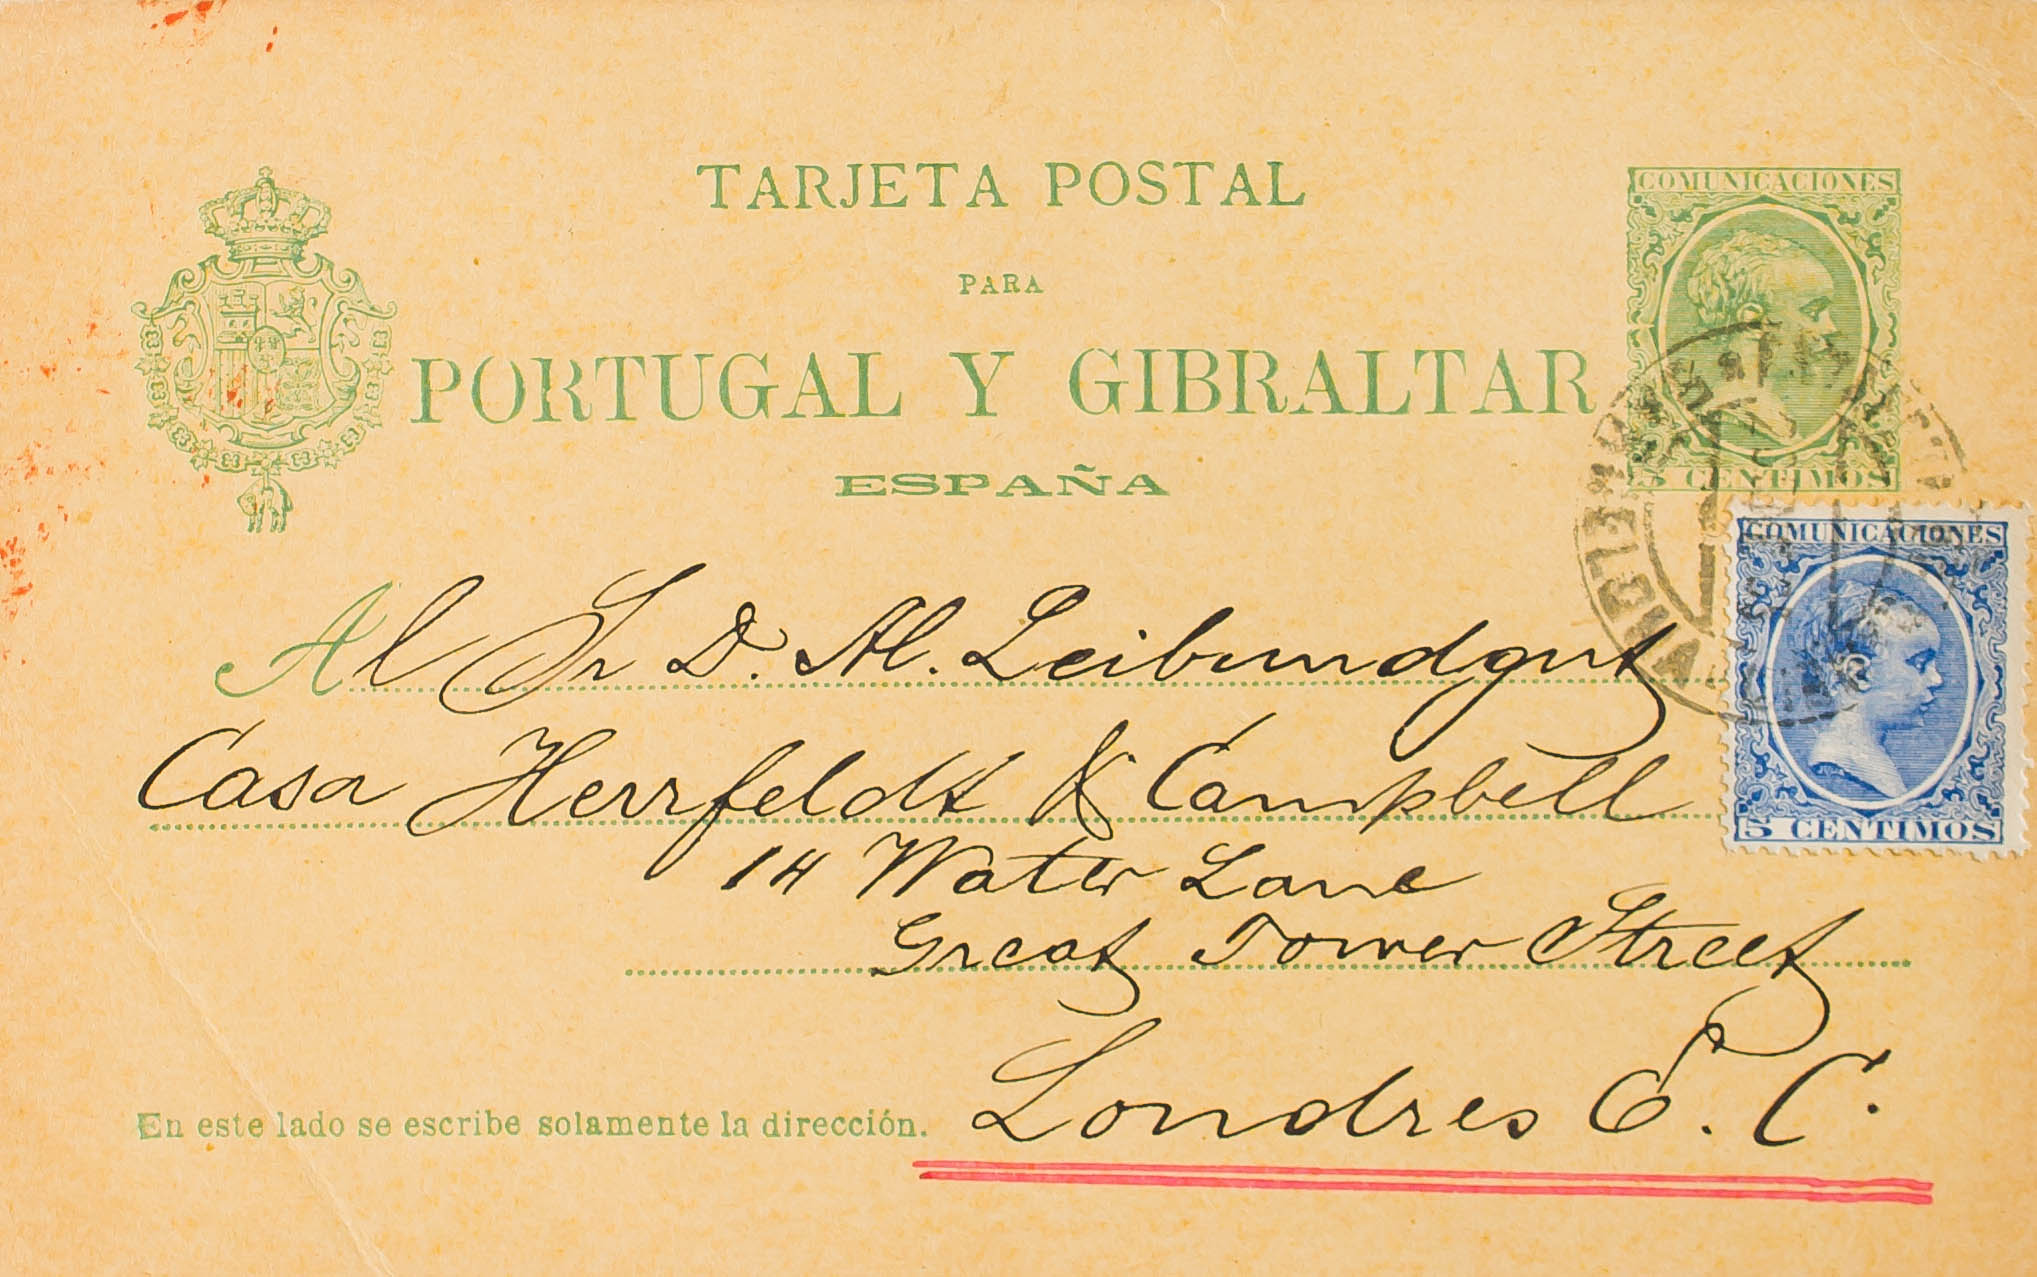 TARJETA POSTAL
PARA
PORTUGAL Y GIBRALTAR
ESPAÑA
COMUNICACIONES
5 CENTIMOS
COMUNICACIONES
5 CENTIMOS
BARCELONA
Al Sr D. Al. Leibundgut
Casa Herrfeldt & Campbell
14 Water Lane
Great Tower Street
Londres E. C.
En este lado se escribe solamente la dirección.